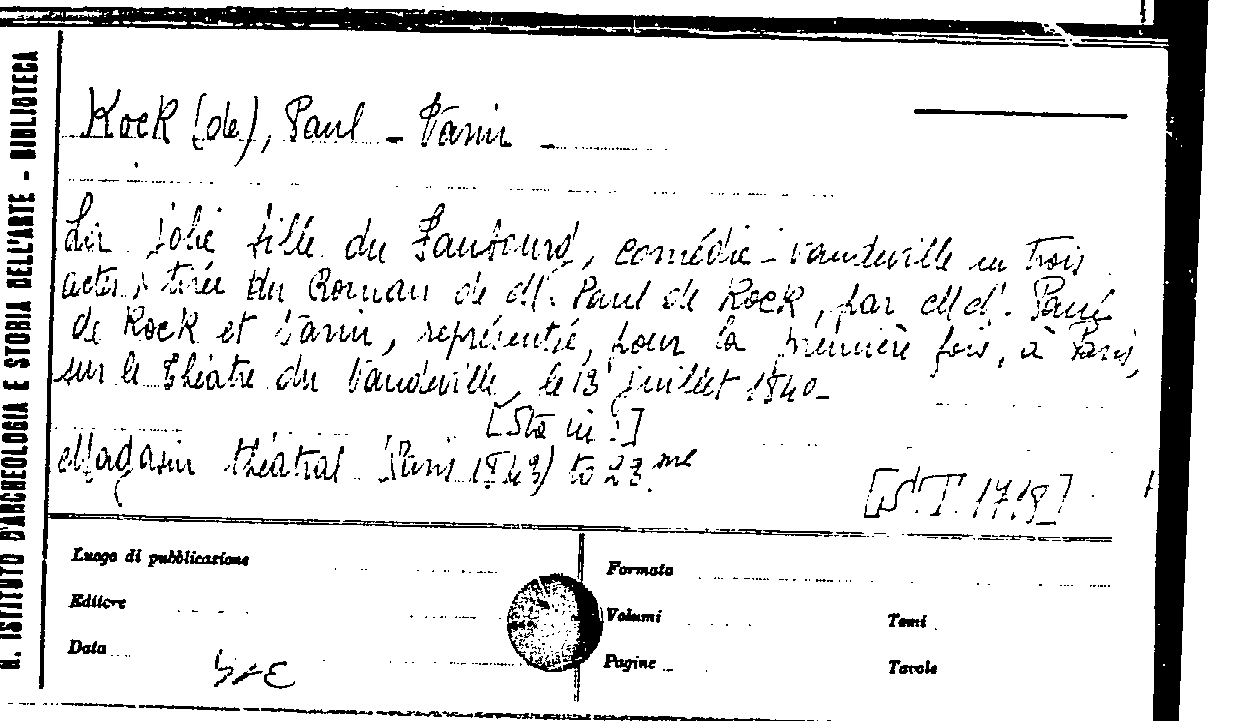 R. ISTITUTO D'ARCHEOLOGIA E STORIA DELL'ARTE - BIBLIOTECA
Kock (de), Paul - Varin
La jolie fille du Faubourg, comédie-vaudeville en trois
actes, tirée du Roman de M. Paul de Kock, par MM. Paul
de Kock et Varin, représentée, pour la première fois, à Paris,
sur le théatre du Vaudeville, le 13 juillet 1840-
[Sta in:]
Magasin théatral (Paris 1843) to 23.me
[S.T. 17.18]
Luogo di pubblicazione
Formato
Editore
Volumi
Tomi
Data
Pagine
Tavole